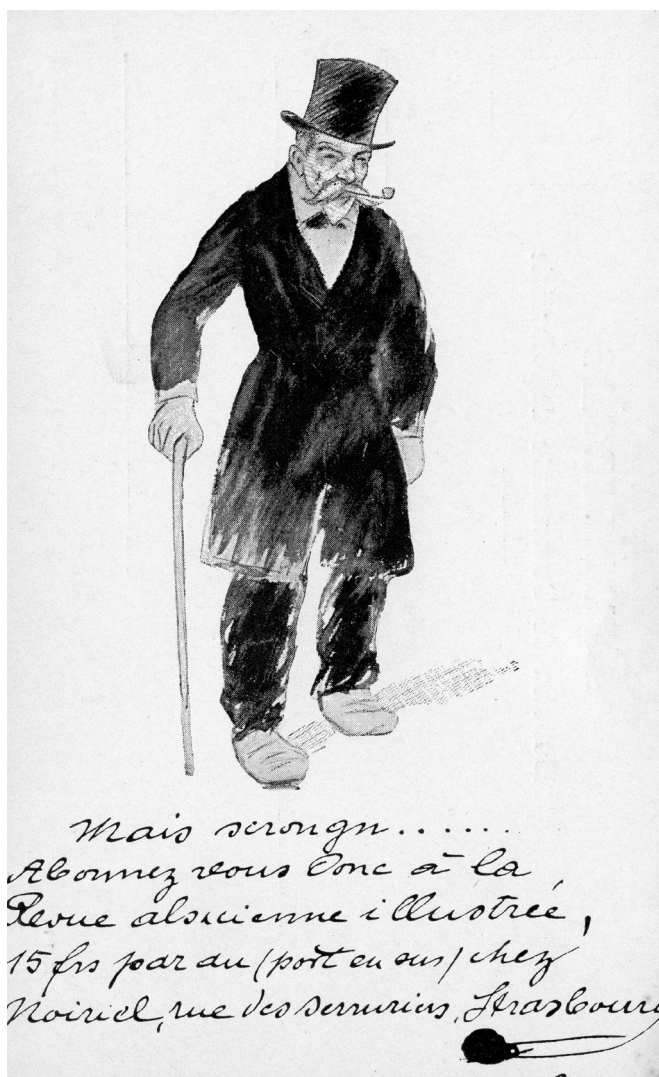 Mais scrongn......
Abonnez vous donc à la
Revue alsacienne illustrée,
15 frs par an (port en sus) chez
Noiriel, rue des serruriers, Strasbourg